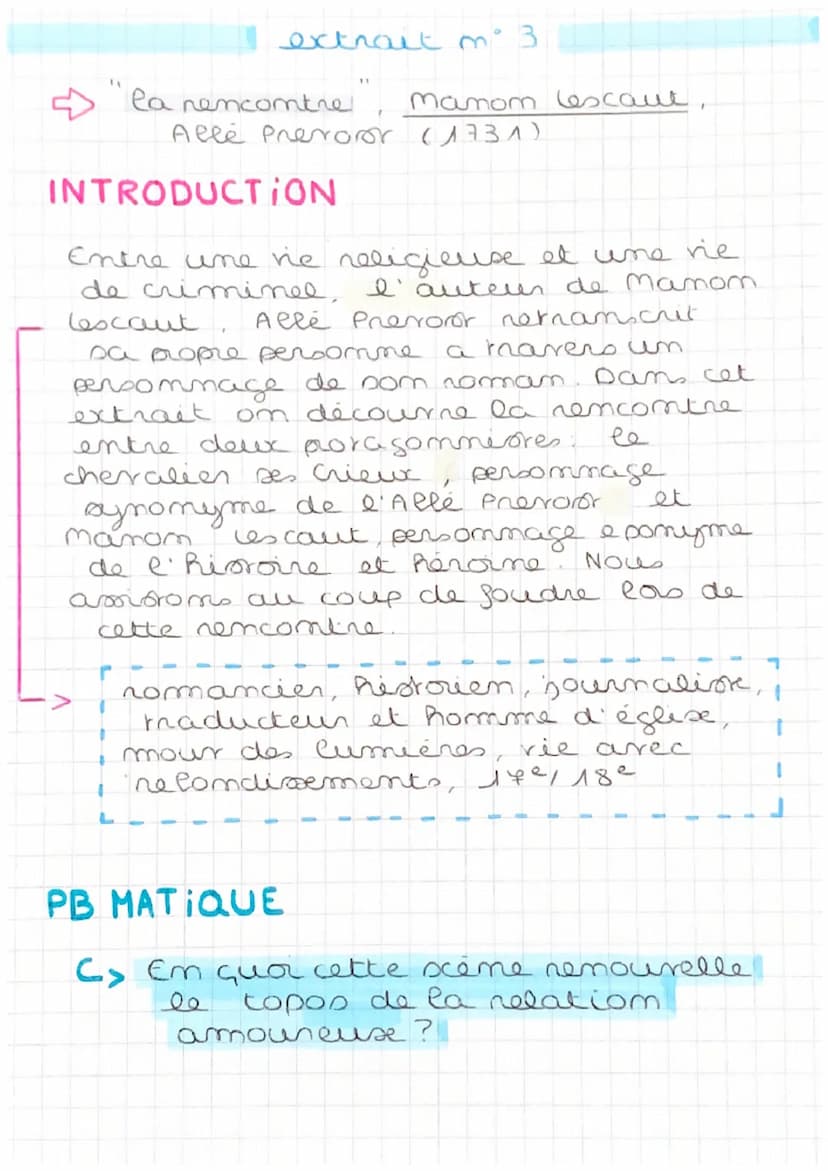 extrait n° 3
"la rencontre", Manon Lescaut,
Abbé Prevost (1731)
INTRODUCTION
Entre une vie religieuse et une vie
de criminel, l'auteur de Manon
Lescaut, Abbé Prevost retranscrit
sa propre personne a travers un
personnage de son roman. Dans cet
extrait on découvre la rencontre
entre deux protagonnistes : le
chevalier Des Grieux, personnage
synonyme de l'Abbé Prevost et
Manon Lescaut, personnage eponyme
de l'histoire et héroïne. Nous
assistons au coup de foudre lors de
cette rencontre.
romancier, historien, journaliste,
traducteur et homme d'église,
mour des lumières, vie avec
rebondissements, 17e/18e
PB MATIQUE
En quoi cette scène renouvelle
le topos de la relation
amoureuse ?